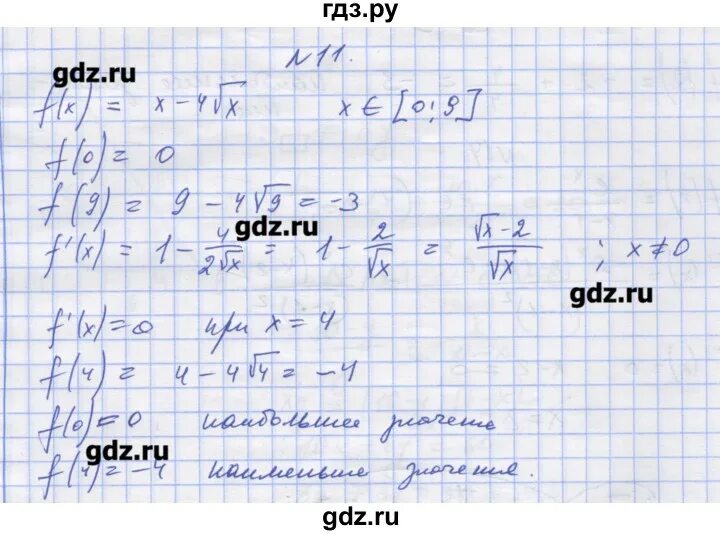 гдз.ру
№11.
gdz.ru
f(x) = x - 4√x    x ∈ [0; 9]
f(0) = 0
f(9) = 9 - 4√9 = -3
gdz.ru
f'(x) = 1 - 4/(2√x) = 1 - 2/√x = (√x - 2)/√x ; x ≠ 0
gdz.ru
f'(x) = 0 при x = 4
f(4) = 4 - 4√4 = -4
f(0) = 0 наибольшее значение
gdz.ru
f(4) = -4 наименьше значение.
gdz.ru